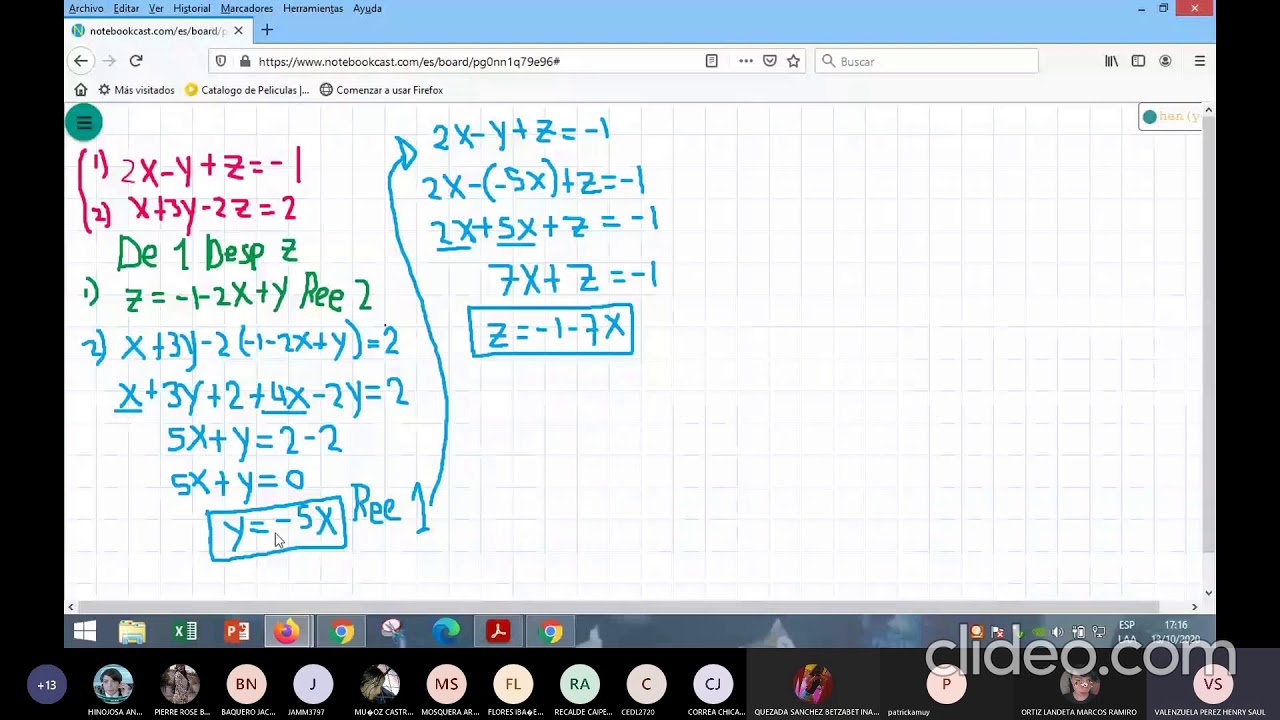 Archivo Editar Ver Historial Marcadores Herramientas Ayuda
notebookcast.com/es/board/p
https://www.notebookcast.com/es/board/pg0nn1q79e96#
Buscar
Más visitados Catalogo de Peliculas |... Comenzar a usar Firefox
1) 2x-y+z=-1
2) x+3y-2z=2
De 1 Desp z
1) z=-1-2x+y Ree 2
2) x+3y-2(-1-2x+y)=2
x+3y+2+4x-2y=2
5x+y=2-2
5x+y=0
y=-5x Ree 1
2x-y+z=-1
2x-(-5x)+z=-1
2x+5x+z=-1
7x+z=-1
z=-1-7x
hen(y
ESP
LAA
17:16
13/10/2020
clideo.com
+13
HINOJOSA AN...
PIERRE ROSE B...
BN
BAQUERO JAC...
J
JAMM3797
MU�OZ CASTR...
MS
MOSQUERA AR...
FL
FLORES IBA�E...
RA
RECALDE CAIPE...
C
CEDL2720
CJ
CORREA CHICA...
QUEZADA SANCHEZ BETZABET INA...
P
patrickamuy
ORTIZ LANDETA MARCOS RAMIRO
VS
VALENZUELA PEREZ HENRY SAUL